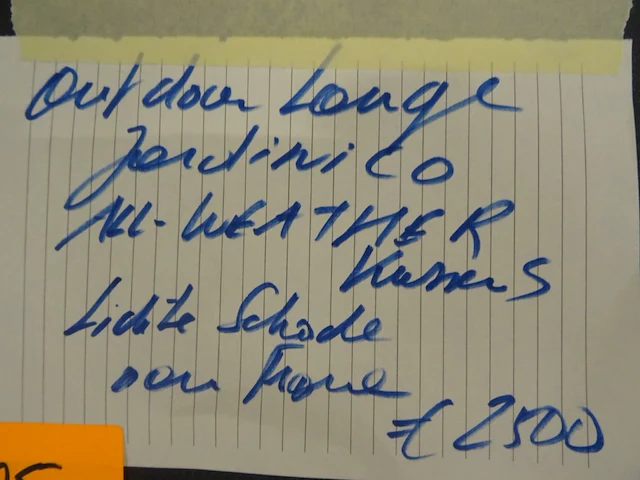 Outdoor Longe
Jardinico
All-WEATHER
Kussens
Lichte Schade
aan Frame
€ 2500